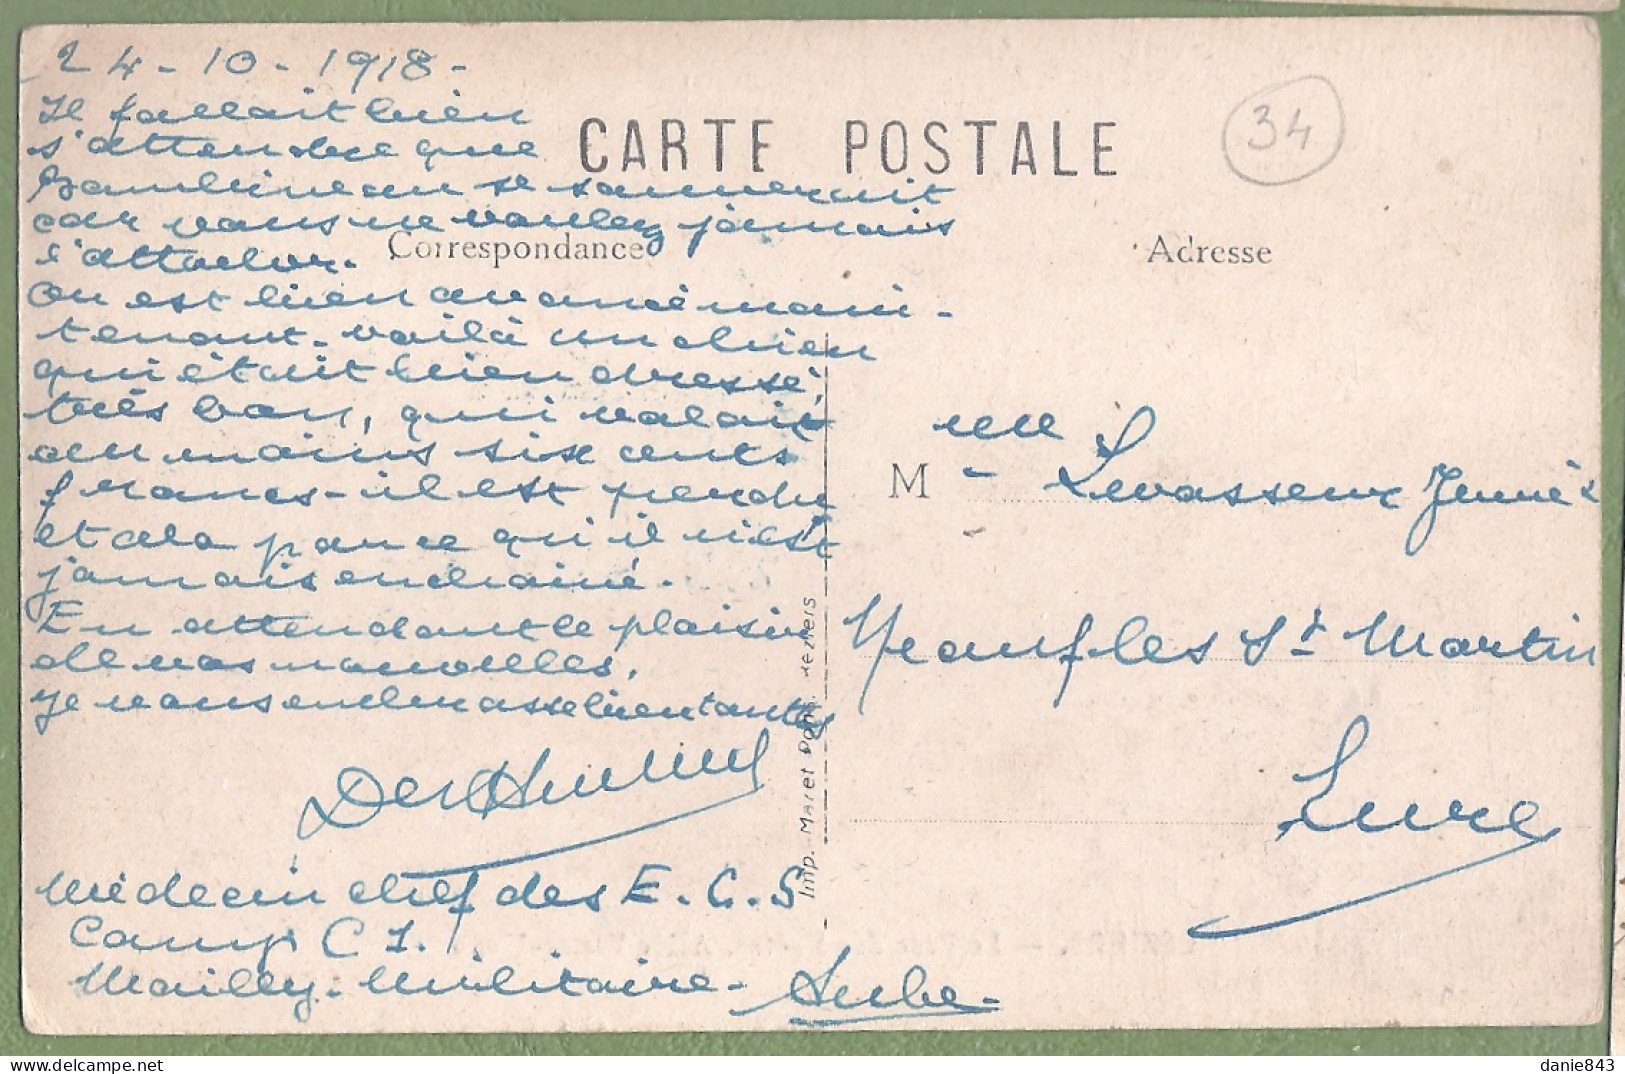 24-10-1918-
Il fallait bien
s'attendre que
se sauverait
car vous ne vouley jamais
l'attacher.
on est bien avancé main-
tenant. voilà un chien
qui était bien dressé,
très bon, qui valait
au moins six cents
francs - il est perdu
et cela parce qu'il n'est
jamais enchainé.
En attendant le plaisir
de vos nouvelles,
je vous embrasse bien tantes
Médecin chef des E.C.S
Camp C I.
Mailly-Militaire-Aube-
CARTE POSTALE
34
Correspondance
Adresse
M elle Levasseur
Neaufles St Martin
Eure
Imp. Maret Pont. Beziers
danie843